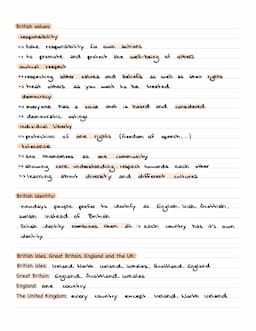 British values:
responsibility
-> take responsibility for own actions
-> to promote and protect the well-being of others
mutual respect
-> respecting other values and beliefs as well as their rights
-> treat others as you want to be treated
democracy
-> everyone has a voice and is heard and considered
-> democratic votings
individual liberty
-> protection of one rights (freedom of speech...)
tolerance
-> see themselves as one community
-> showing care, understanding, respect towards each other
-> learning about diversity and different cultures
British identity:
nowadays people prefer to identify as English, Irish, Scottish,
Welsh instead of British
British identity combines them all -> each country has it's own
identity
British Isles, Great Britain, England and the UK:
British Isles: Ireland, North Ireland, Wales, Scotland, England
Great Britain: England, Scotland, Wales
England: one country
The United Kingdom: every country except Ireland, North Ireland